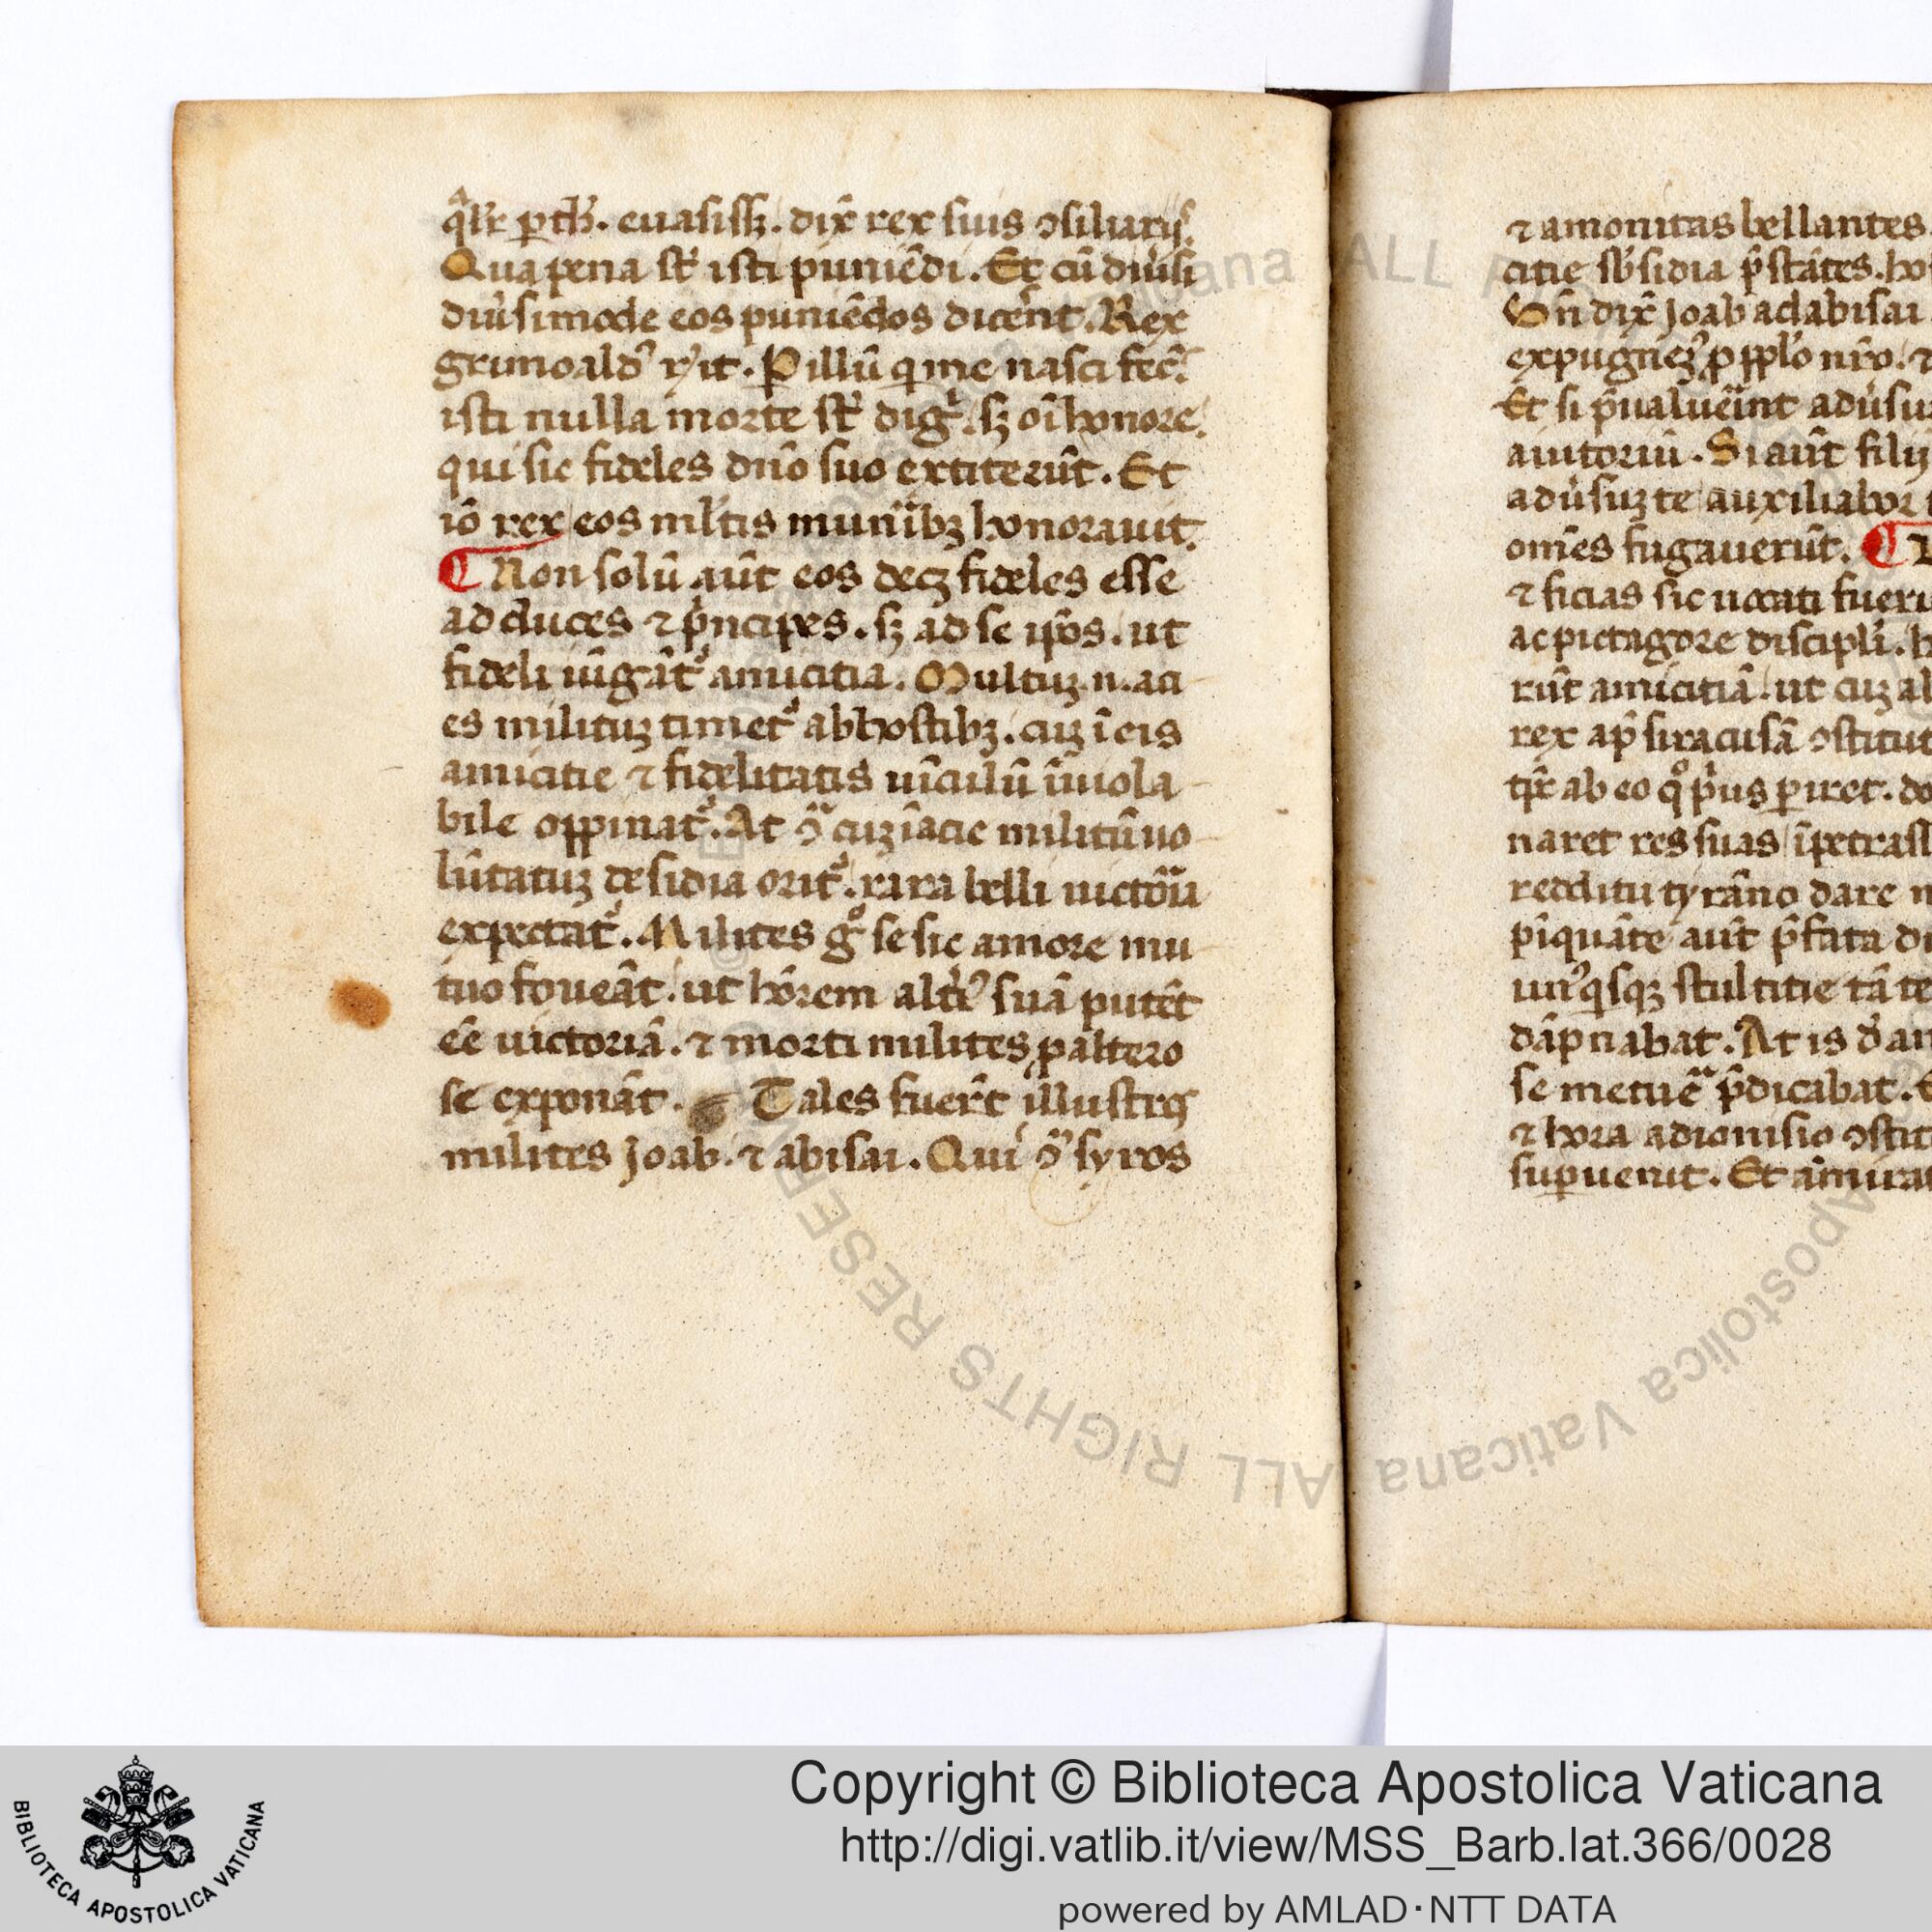 qͣlr̄ ꝑth̄. euasisꝫ. dix̄ rex suis ꝯsiliarijs.
Qua pena st̄ isti puniēdi. Et cū diu̾si
diu̾simode eos puniēdos dicēnt. Rex
grimoaldꝰ ꝛ̾it. P illū q me nasci fec̄.
isti nulla morte st̄ digͥ. sꝫ oī honore.
qui sic fideles dn̄o suo extiterūt. Et
iō rex eos ml̄tis munīibꝫ honorauit.
¶ Non solū aūt eos decꝫ fideles esse
ad duces ⁊ pͥncipes. sꝫ ad se ip̄os. ut
fideli iūgāt᷑ amicitia. Multuꝫ .n. aci
es milituꝫ timet᷑ ab hostibꝫ. cuꝫ ī eis
amicitie ⁊ fidelitatis uīculū īuiola
bile oppinat᷑. At ꝯͣ cuꝫ ī acie militū uo
lūtatuꝫ desidia orit᷑. rara belli uictōͣia
expectat᷑. Milites gͦ se sic amore mu
tuo foueāt. ut hōrem altīꝰ suā putēt
eē uictoriā. ⁊ morti milites ꝓ altero
se exponāt. Tales fuer̄t illustres
milites Joab. ⁊ abisai. Qui ꝯͣ syros
⁊ amonitas bellantes
citie sb̄sidia p̄stātes.
Vn̄ dix̄ Joab ad abisai
expugnēꝰ ꝓ pp̄lo nr̄o. ⁊
Et si p̄ualuēint adu̾su
auitoriū. Si aūt filij
adu̾suꝫ te auxiliabor
om̄es fugauerūt. ¶
⁊ ficias sic uocati fueri
ac pictagore discipli.
rūt amicitiā. ut cuꝫ al
rex ap̄ siracusā ꝯstitut
tp̄r ab eo qͦ pͥus ꝑiret. do
naret res suas īpetrass
redditu tyrāno dare n
pīquāte aūt p̄fata di
unꝰqͥsqꝫ stultitie tā te
dāpnabat. At is d̄ an
se metuē p̄dicabat.
⁊ hora a dionisio ꝯstit
suꝑuenit. Et āmirat
Copyright © Biblioteca Apostolica Vaticana
http://digi.vatlib.it/view/MSS_Barb.lat.366/0028
powered by AMLAD·NTT DATA
BIBLIOTECA APOSTOLICA VATICANA